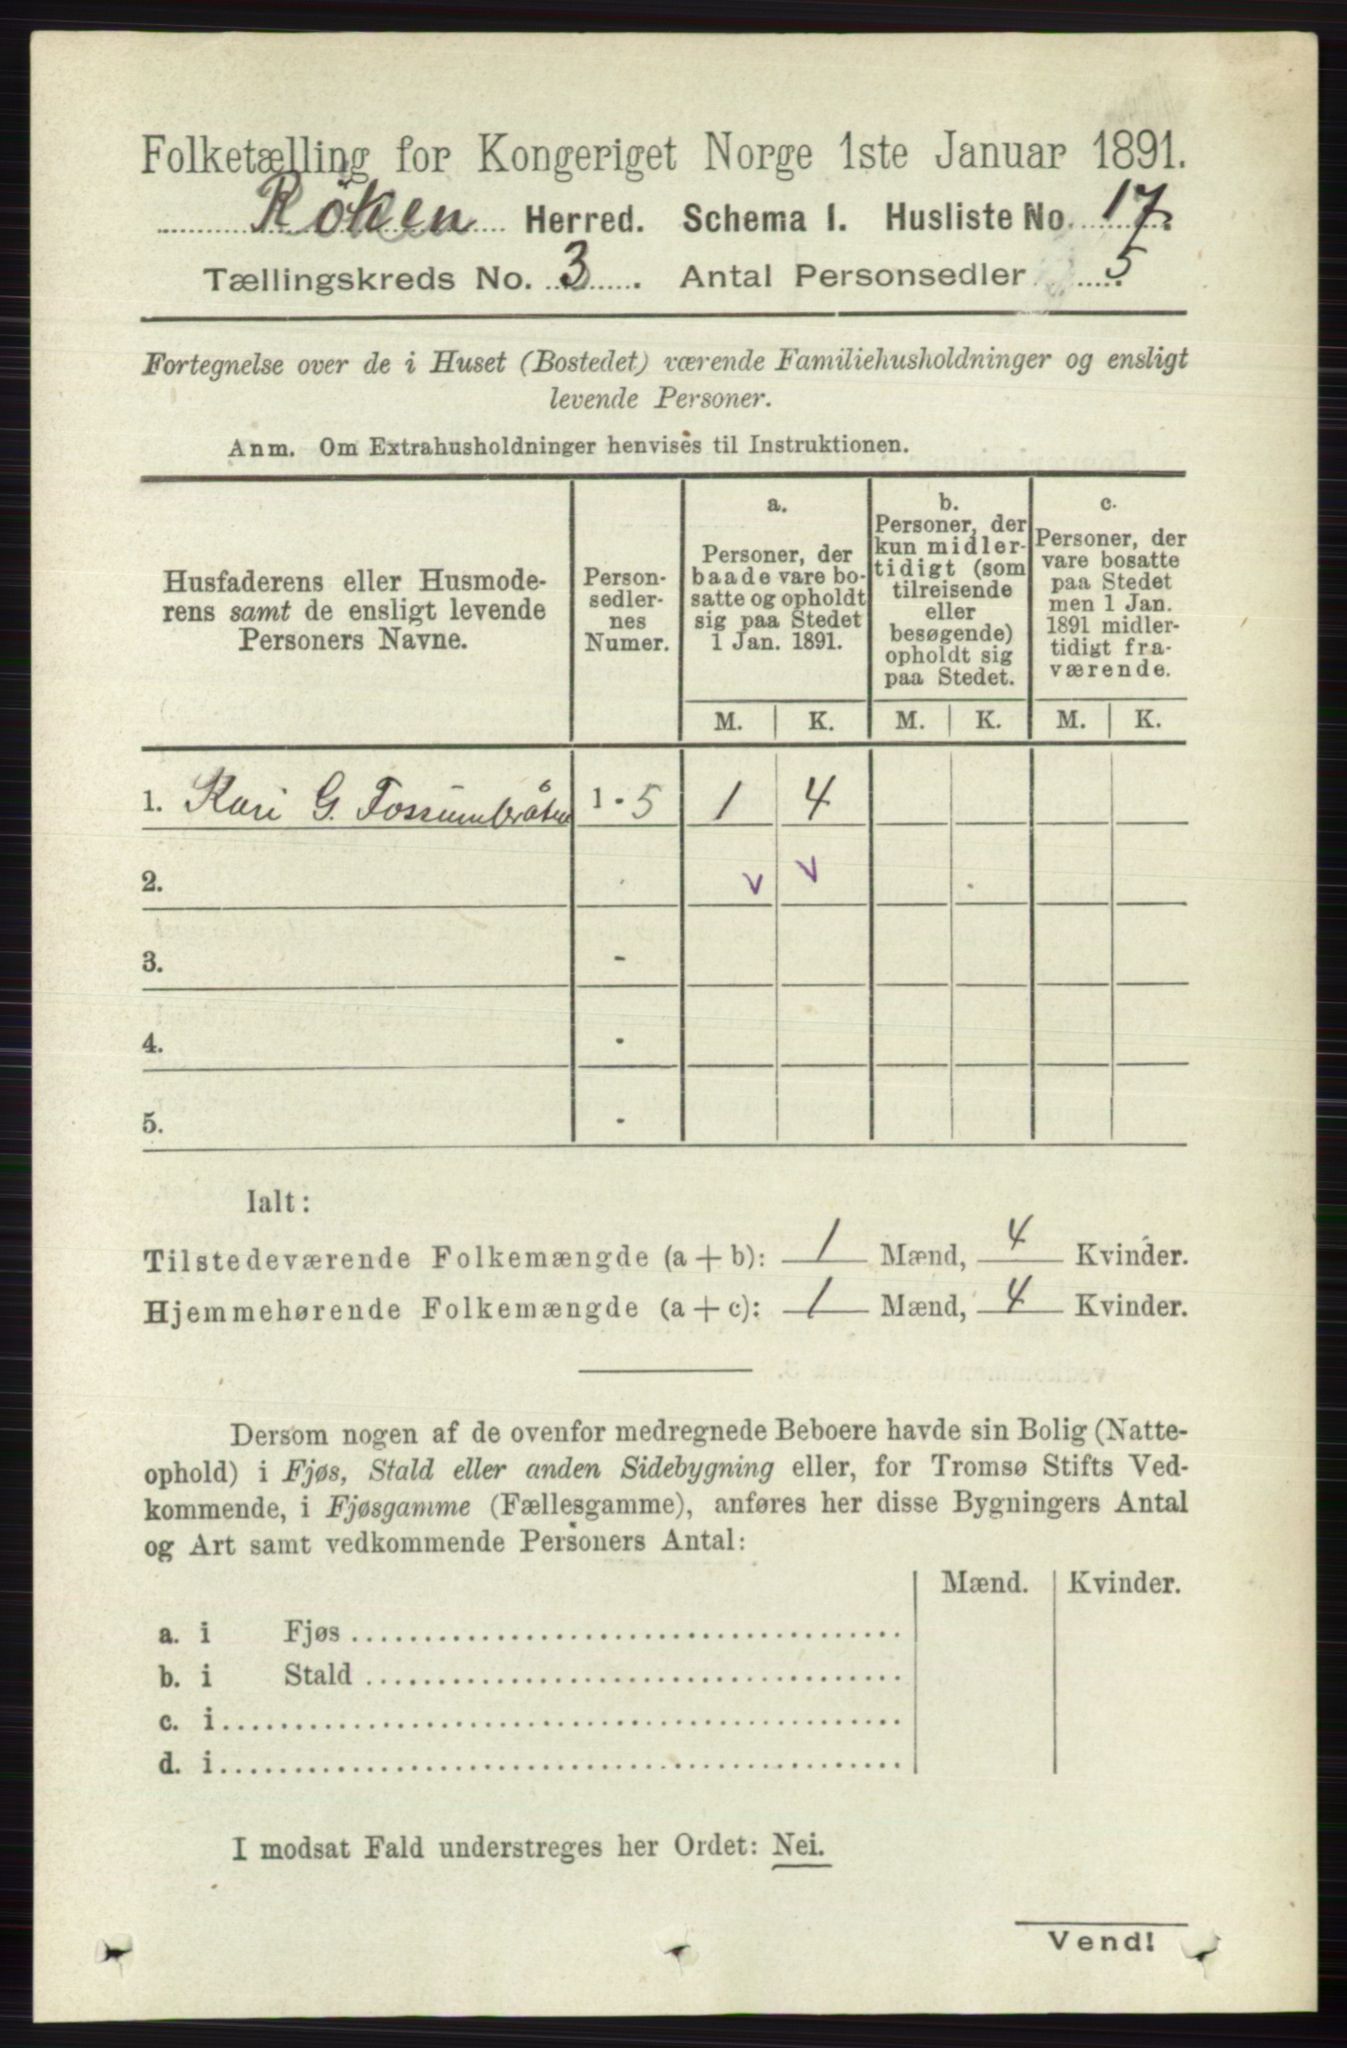 Folketælling for Kongeriget Norge 1ste Januar 1891.
Röken Herred. Schema I. Husliste No. 17.
Tællingskreds No. 3. Antal Personsedler 5.
Fortegnelse over de i Huset (Bostedet) værende Familiehusholdninger og ensligt
levende Personer.
Anm. Om Extrahusholdninger henvises til Instruktionen.
Husfaderens eller Husmode-
rens samt de ensligt levende
Personers Navne.
Person-
sedler-
nes
Numer.
a.
Personer, der
baade vare bo-
satte og opholdt
sig paa Stedet
1 Jan. 1891.
b.
Personer, der
kun midler-
tidigt (som
tilreisende
eller
besøgende)
opholdt sig
paa Stedet.
c.
Personer, der
vare bosatte
paa Stedet
men 1 Jan.
1891 midler-
tidigt fra-
værende.
M. K. M. K. M. K.
1. Kari G. Fossumbråten 1 - 5 1 4
2. v v
3. -
4. -
5. -
Ialt:
Tilstedeværende Folkemængde (a + b): 1 Mænd, 4 Kvinder.
Hjemmehørende Folkemængde (a + c): 1 Mænd, 4 Kvinder.
Dersom nogen af de ovenfor medregnede Beboere havde sin Bolig (Natte-
ophold) i Fjøs, Stald eller anden Sidebygning eller, for Tromsø Stifts Ved-
kommende, i Fjøsgamme (Fællesgamme), anføres her disse Bygningers Antal
og Art samt vedkommende Personers Antal:
Mænd. Kvinder.
a. i Fjøs
b. i Stald
c. i
d. i
I modsat Fald understreges her Ordet: Nei.
Vend!